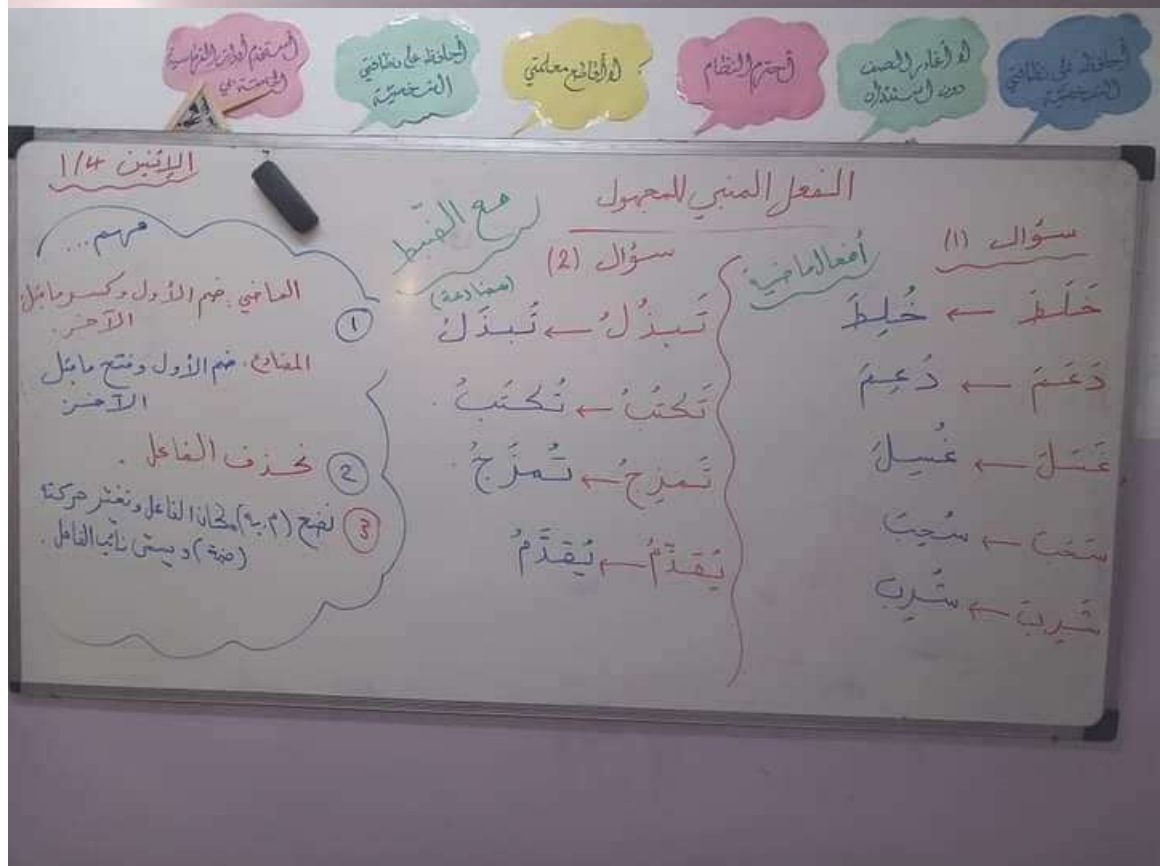 أحافظ على نظافتي
الشخصية
لا أغادر الصف
دون استئذان
أحترم النظام
لا أقاطع معلمتي
أحافظ على نظافتي
الشخصية
أستخدم أدوات القرطاسية
الخاصة بي
الفعل المبني للمجهول
سؤال (1)
أفعال ماضية
خَلَطَ ← خُلِطَ
دَعَمَ ← دُعِمَ
غَسَلَ ← غُسِلَ
سَحَبَ ← سُحِبَ
شَرِبَ ← شُرِبَ
سؤال (2)
مع الضبط
(مضارعة)
تَبذُلُ ← تُبذَلُ
تَكتُبُ ← تُكتَبُ
تَمزِجُ ← تُمزَجُ
يُقدِّمُ ← يُقدَّمُ
الإثنين 1/4
مهم...
1 الماضي: ضم الأول وكسر ما قبل
الآخر.
المضارع: ضم الأول وفتح ما قبل
الآخر
2 نحذف الفاعل.
3 نضع (م. به) مكان الفاعل ونغير حركته
(ضمة) ويسمى نائب الفاعل.